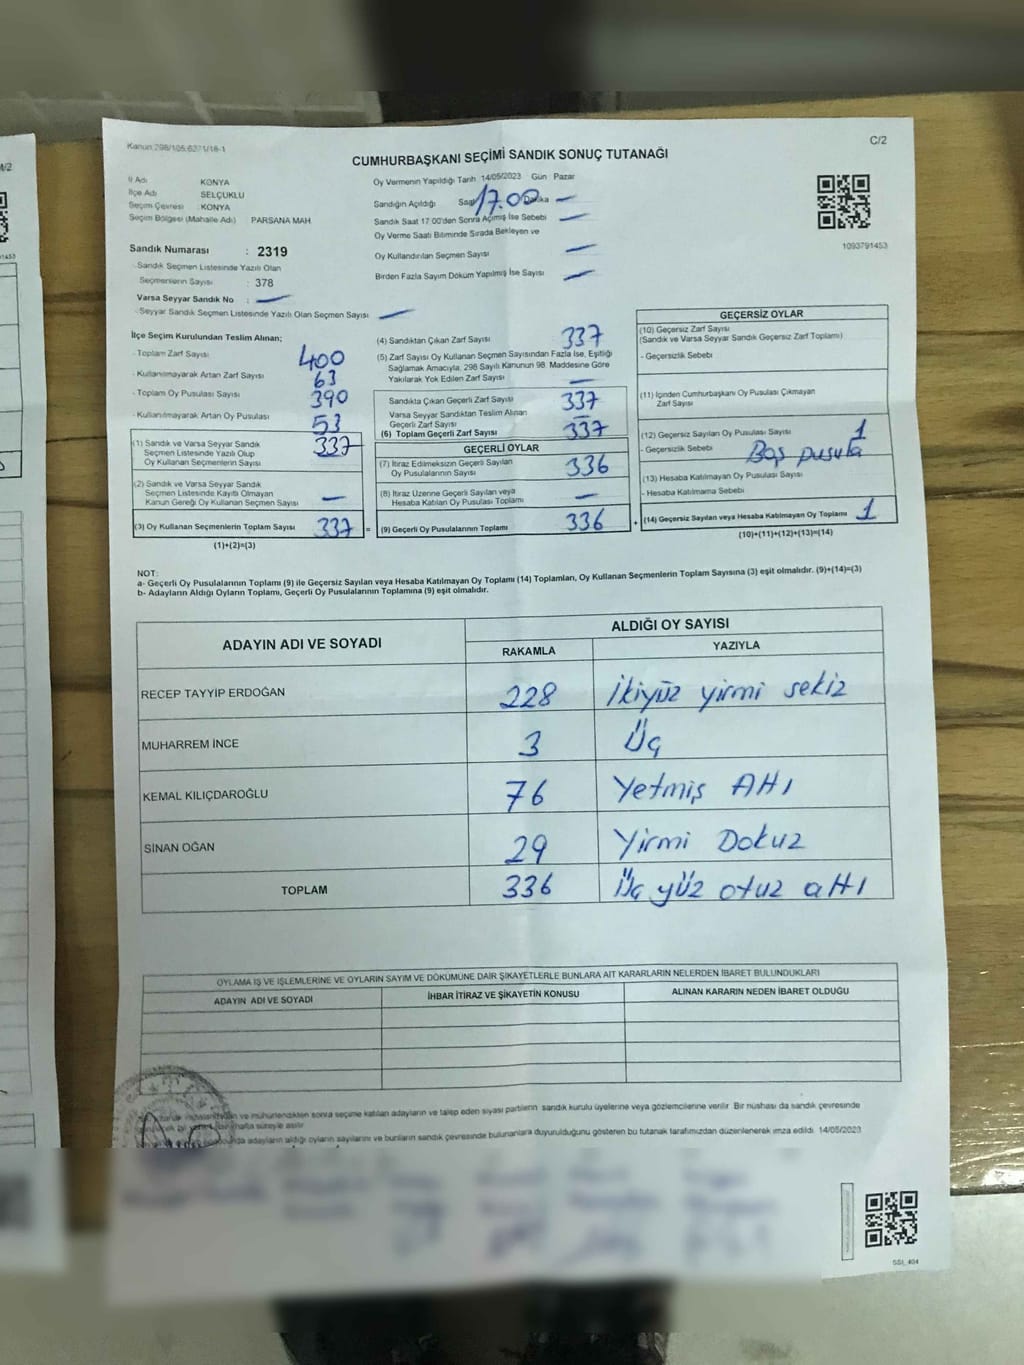 Kanun 298/105.6271/16-1
C/2
CUMHURBAŞKANI SEÇİMİ SANDIK SONUÇ TUTANAĞI
İl Adı KONYA
İlçe Adı SELÇUKLU
Seçim Çevresi : KONYA
Seçim Bölgesi (Mahalle Adı) PARSANA MAH.
Sandık Numarası : 2319
Sandık Seçmen Listesinde Yazılı Olan
Seçmenlerin Sayısı : 378
Varsa Seyyar Sandık No : —
Seyyar Sandık Seçmen Listesinde Yazılı Olan Seçmen Sayısı —
Oy Vermenin Yapıldığı Tarih 14/05/2023 Gün Pazar
Sandığın Açıldığı Saat 17.00 Dakika —
Sandık Saat 17:00'den Sonra Açılmış İse Sebebi —
Oy Verme Saati Bitiminde Sırada Bekleyen ve
Oy Kullandırılan Seçmen Sayısı —
Birden Fazla Sayım Döküm Yapılmış İse Sayısı —
1093791453
İlçe Seçim Kurulundan Teslim Alınan;
- Toplam Zarf Sayısı 400
- Kullanılmayarak Artan Zarf Sayısı 63
- Toplam Oy Pusulası Sayısı 390
- Kullanılmayarak Artan Oy Pusulası 53
(1) Sandık ve Varsa Seyyar Sandık
Seçmen Listesinde Yazılı Olup 337
Oy Kullanan Seçmenlerin Sayısı
(2) Sandık ve Varsa Seyyar Sandık
Seçmen Listesinde Kayıtlı Olmayan
Kanun Gereği Oy Kullanan Seçmen Sayısı —
(3) Oy Kullanan Seçmenlerin Toplam Sayısı 337 =
(1)+(2)=(3)
(4) Sandıktan Çıkan Zarf Sayısı 337
(5) Zarf Sayısı Oy Kullanan Seçmen Sayısından Fazla İse, Eşitliği
Sağlamak Amacıyla, 298 Sayılı Kanunun 98. Maddesine Göre
Yakılarak Yok Edilen Zarf Sayısı —
Sandıkta Çıkan Geçerli Zarf Sayısı 337
Varsa Seyyar Sandıktan Teslim Alınan
Geçerli Zarf Sayısı —
(6) Toplam Geçerli Zarf Sayısı 337
GEÇERLİ OYLAR
(7) İtiraz Edilmeksizin Geçerli Sayılan
Oy Pusulalarının Sayısı 336
(8) İtiraz Üzerine Geçerli Sayılan veya
Hesaba Katılan Oy Pusulası Toplamı —
(9) Geçerli Oy Pusulalarının Toplamı 336 +
GEÇERSİZ OYLAR
(10) Geçersiz Zarf Sayısı
(Sandık ve Varsa Seyyar Sandık Geçersiz Zarf Toplamı)
- Geçersizlik Sebebi
(11) İçinden Cumhurbaşkanı Oy Pusulası Çıkmayan
Zarf Sayısı
(12) Geçersiz Sayılan Oy Pusulası Sayısı 1
- Geçersizlik Sebebi Boş pusula
(13) Hesaba Katılmayan Oy Pusulası Sayısı
- Hesaba Katılmama Sebebi
(14) Geçersiz Sayılan veya Hesaba Katılmayan Oy Toplamı 1
(10)+(11)+(12)+(13)=(14)
NOT:
a- Geçerli Oy Pusulalarının Toplamı (9) ile Geçersiz Sayılan veya Hesaba Katılmayan Oy Toplamı (14) Toplamları, Oy Kullanan Seçmenlerin Toplam Sayısına (3) eşit olmalıdır. (9)+(14)=(3)
b- Adayların Aldığı Oyların Toplamı, Geçerli Oy Pusulalarının Toplamına (9) eşit olmalıdır.
ADAYIN ADI VE SOYADI ALDIĞI OY SAYISI
RAKAMLA YAZIYLA
RECEP TAYYİP ERDOĞAN 228 İkiyüz yirmi sekiz
MUHARREM İNCE 3 Üç
KEMAL KILIÇDAROĞLU 76 Yetmiş Altı
SİNAN OĞAN 29 Yirmi Dokuz
TOPLAM 336 Üç yüz otuz altı
OYLAMA İŞ VE İŞLEMLERİNE VE OYLARIN SAYIM VE DÖKÜMÜNE DAİR ŞİKAYETLERLE BUNLARA AİT KARARLARIN NELERDEN İBARET BULUNDUKLARI
ADAYIN ADI VE SOYADI İHBAR İTİRAZ VE ŞİKAYETİN KONUSU ALINAN KARARIN NEDEN İBARET OLDUĞU
ve mühürlendikten sonra seçime katılan adayların ve talep eden siyasi partilerin sandık kurulu üyelerine veya gözlemcilerine verilir. Bir nüshası da sandık çevresinde
hafta süreyle asılır.
adayların aldığı oyların sayılarını ve bunların sandık çevresinde bulunanlara duyurulduğunu gösteren bu tutanak tarafımızdan düzenlenerek imza edildi. 14/05/2023